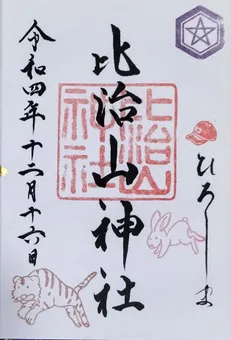 ひろしま
比治山神社
比治山神社
令和四年十二月十六日